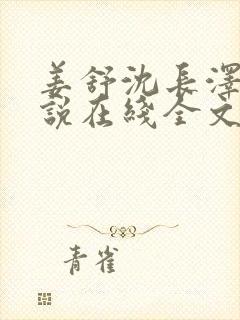 姜舒沈長澤
說在綫全文
青雀